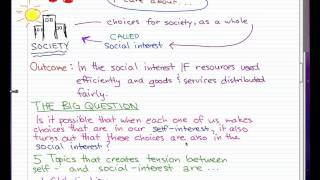 I care about...
choices for society, as a whole
CALLED
SOCIETY
Social interest
Outcome: In the social interest IF resources used
efficiently and goods & services distributed
fairly.
THE BIG QUESTION
Is it possible that when each one of us makes
choices that are in our self-interest, it also
turns out that these choices are also in the
social interest?
5 Topics that creates tension between
self- and social interest are ...